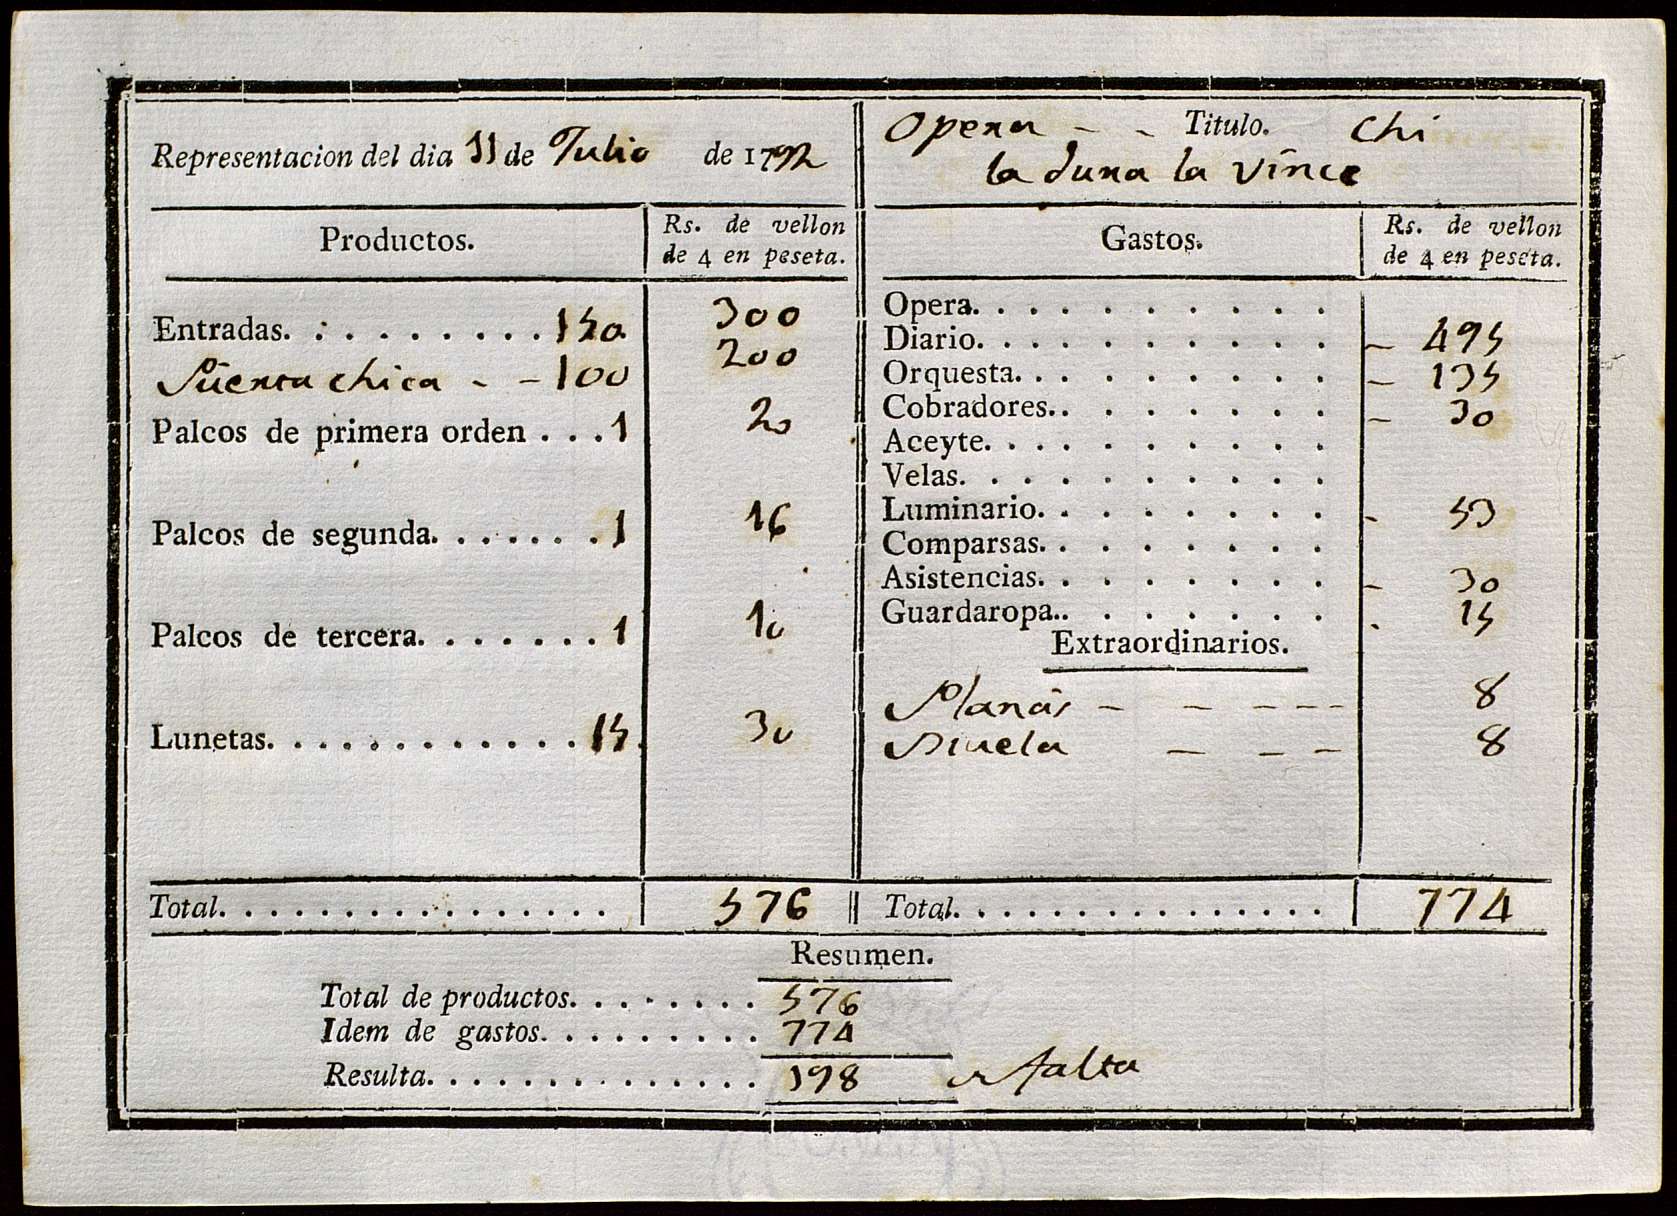 Representacion del dia 11 de Julio de 1792
Productos. Rs. de vellon de 4 en peseta.
Entradas. 150 300
Puerta chica - - 100 200
Palcos de primera orden . . . 1 20
Palcos de segunda. . . . . . . 1 16
Palcos de tercera. . . . . . . 1 10
Lunetas. . . . . . . . . . . . . 15 30
Total. . . . . . . . . . . . . . . . 576
Opera - - Titulo. Chi
la dura la vince
Gastos. Rs. de vellon de 4 en peseta.
Opera. . . . . . . . . .
Diario. . . . . . . . . . - 495
Orquesta. . . . . . . . . - 135
Cobradores. . . . . . . . - 30
Aceyte. . . . . . . . . .
Velas. . . . . . . . . .
Luminario. . . . . . . . - 53
Comparsas. . . . . . . .
Asistencias. . . . . . . . - 30
Guardaropa. . . . . . . . - 15
Extraordinarios.
Planas - - - - - 8
- - - 8
Total. . . . . . . . . . . . . . . . 774
Resumen.
Total de productos. . . . . . . . . 576
Idem de gastos. . . . . . . . . . 774
Resulta. . . . . . . . . . . . . . . 198 falta